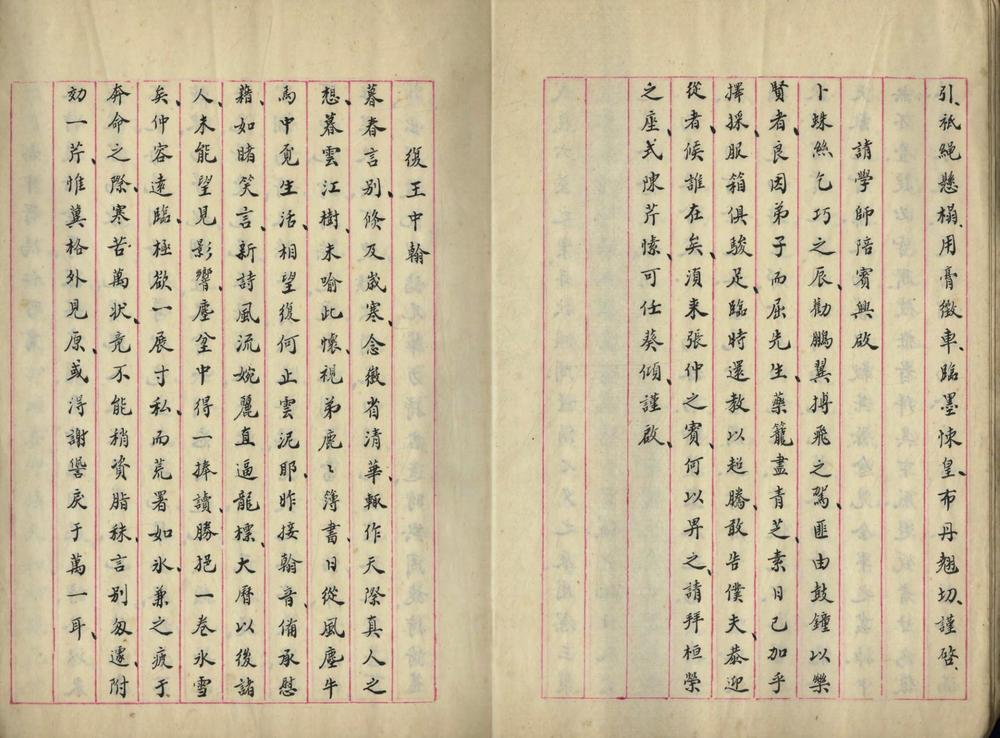 引、祇繩懸榻、用膏徵車、臨墨悚皇、布丹翹切、謹啓、
請學師陪賓興啟
卜蛛絲乞巧之辰勸鵬翼摶飛之駕、匪由鼓鐘以樂
賢者、良因弟子而屈先生、藥籠盡青芝、素日已加乎
擇採、服箱俱駿足、臨時還教以超騰、敢告僕夫、恭迎
從者、候誰在矣、須来張仲之賓、何以畀之、請拜桓榮
之座、式陳芹愫、可任葵傾、謹啟、
復王中翰
暮春言别、倐及嵗寒、念徽省清華、輒作天際真人之
想、暮雲江樹、未喻此懷、視弟鹿〻簿書、日從風塵牛
馬中覔生活、相望復何止雲泥耶、昨接翰音、備承慰
藉、如睹笑言、新詩風流婉麗、直逼龍標、大曆以後諸
人、未能望見影響、塵坌中得一捧讀、勝挹一卷氷雪
矣、仲容遠臨、極欲一展寸私、而荒署如氷、兼之疲于
奔命之際、寒苦萬状、竟不能稍資脂秣、言别匆遽、附
効一芹、惟冀格外見原、或得謝諐戾于萬一耳、